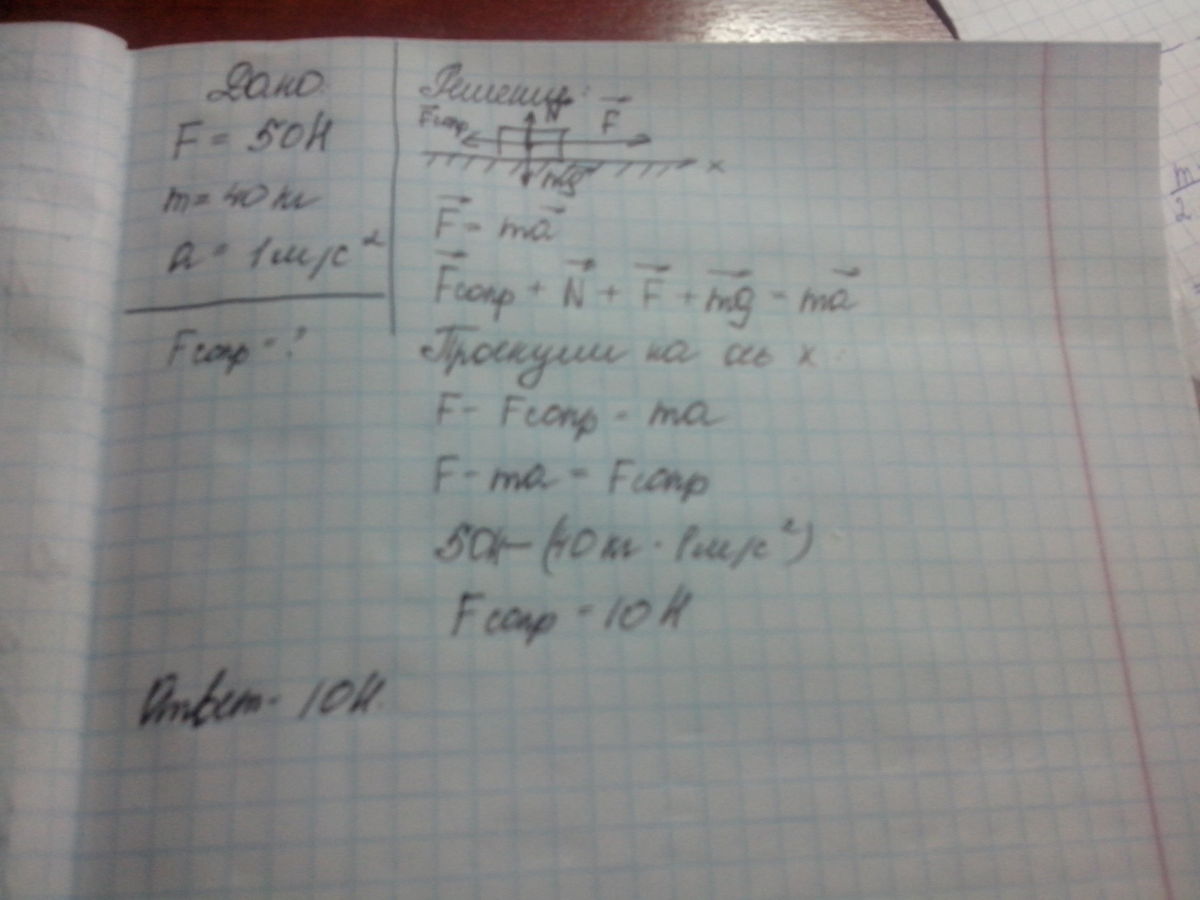 Дано:
F = 50Н
m = 40 кг
a = 1 м/с²
Fсопр = ?
Решение:
Fсопр N F
mg x
F = ma
Fсопр + N + F + mg = ma
Проекции на ось x:
F - Fсопр = ma
F - ma = Fсопр
50Н - (40 кг · 1 м/с²)
Fсопр = 10 Н
Ответ - 10 Н.
m
2